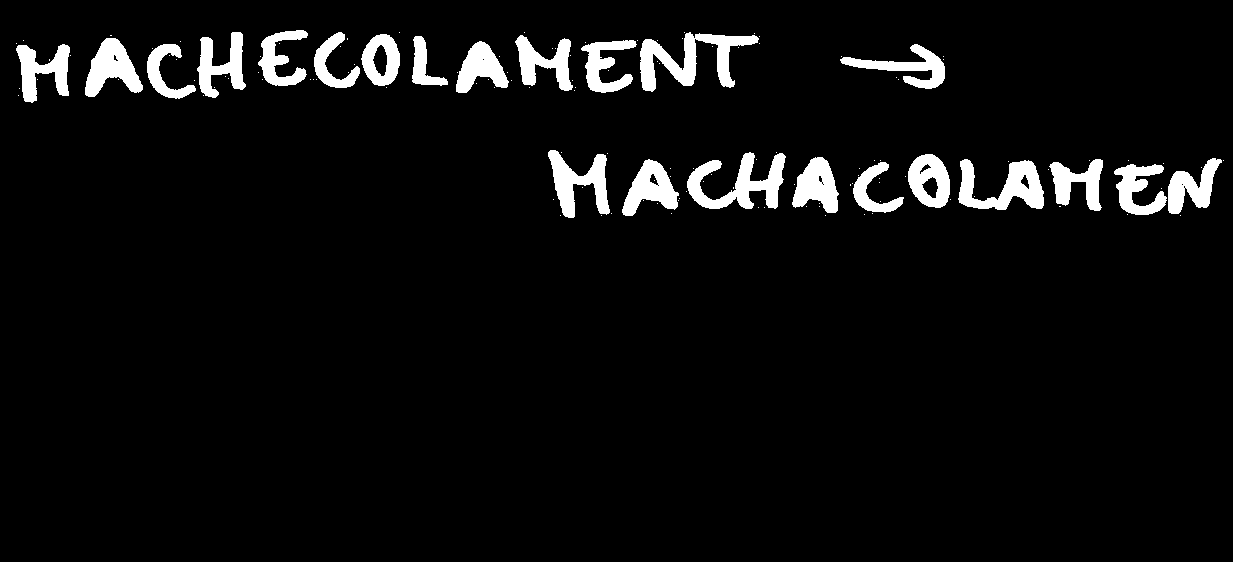 MACHECOLAMENT →
MACHACOLAMEN